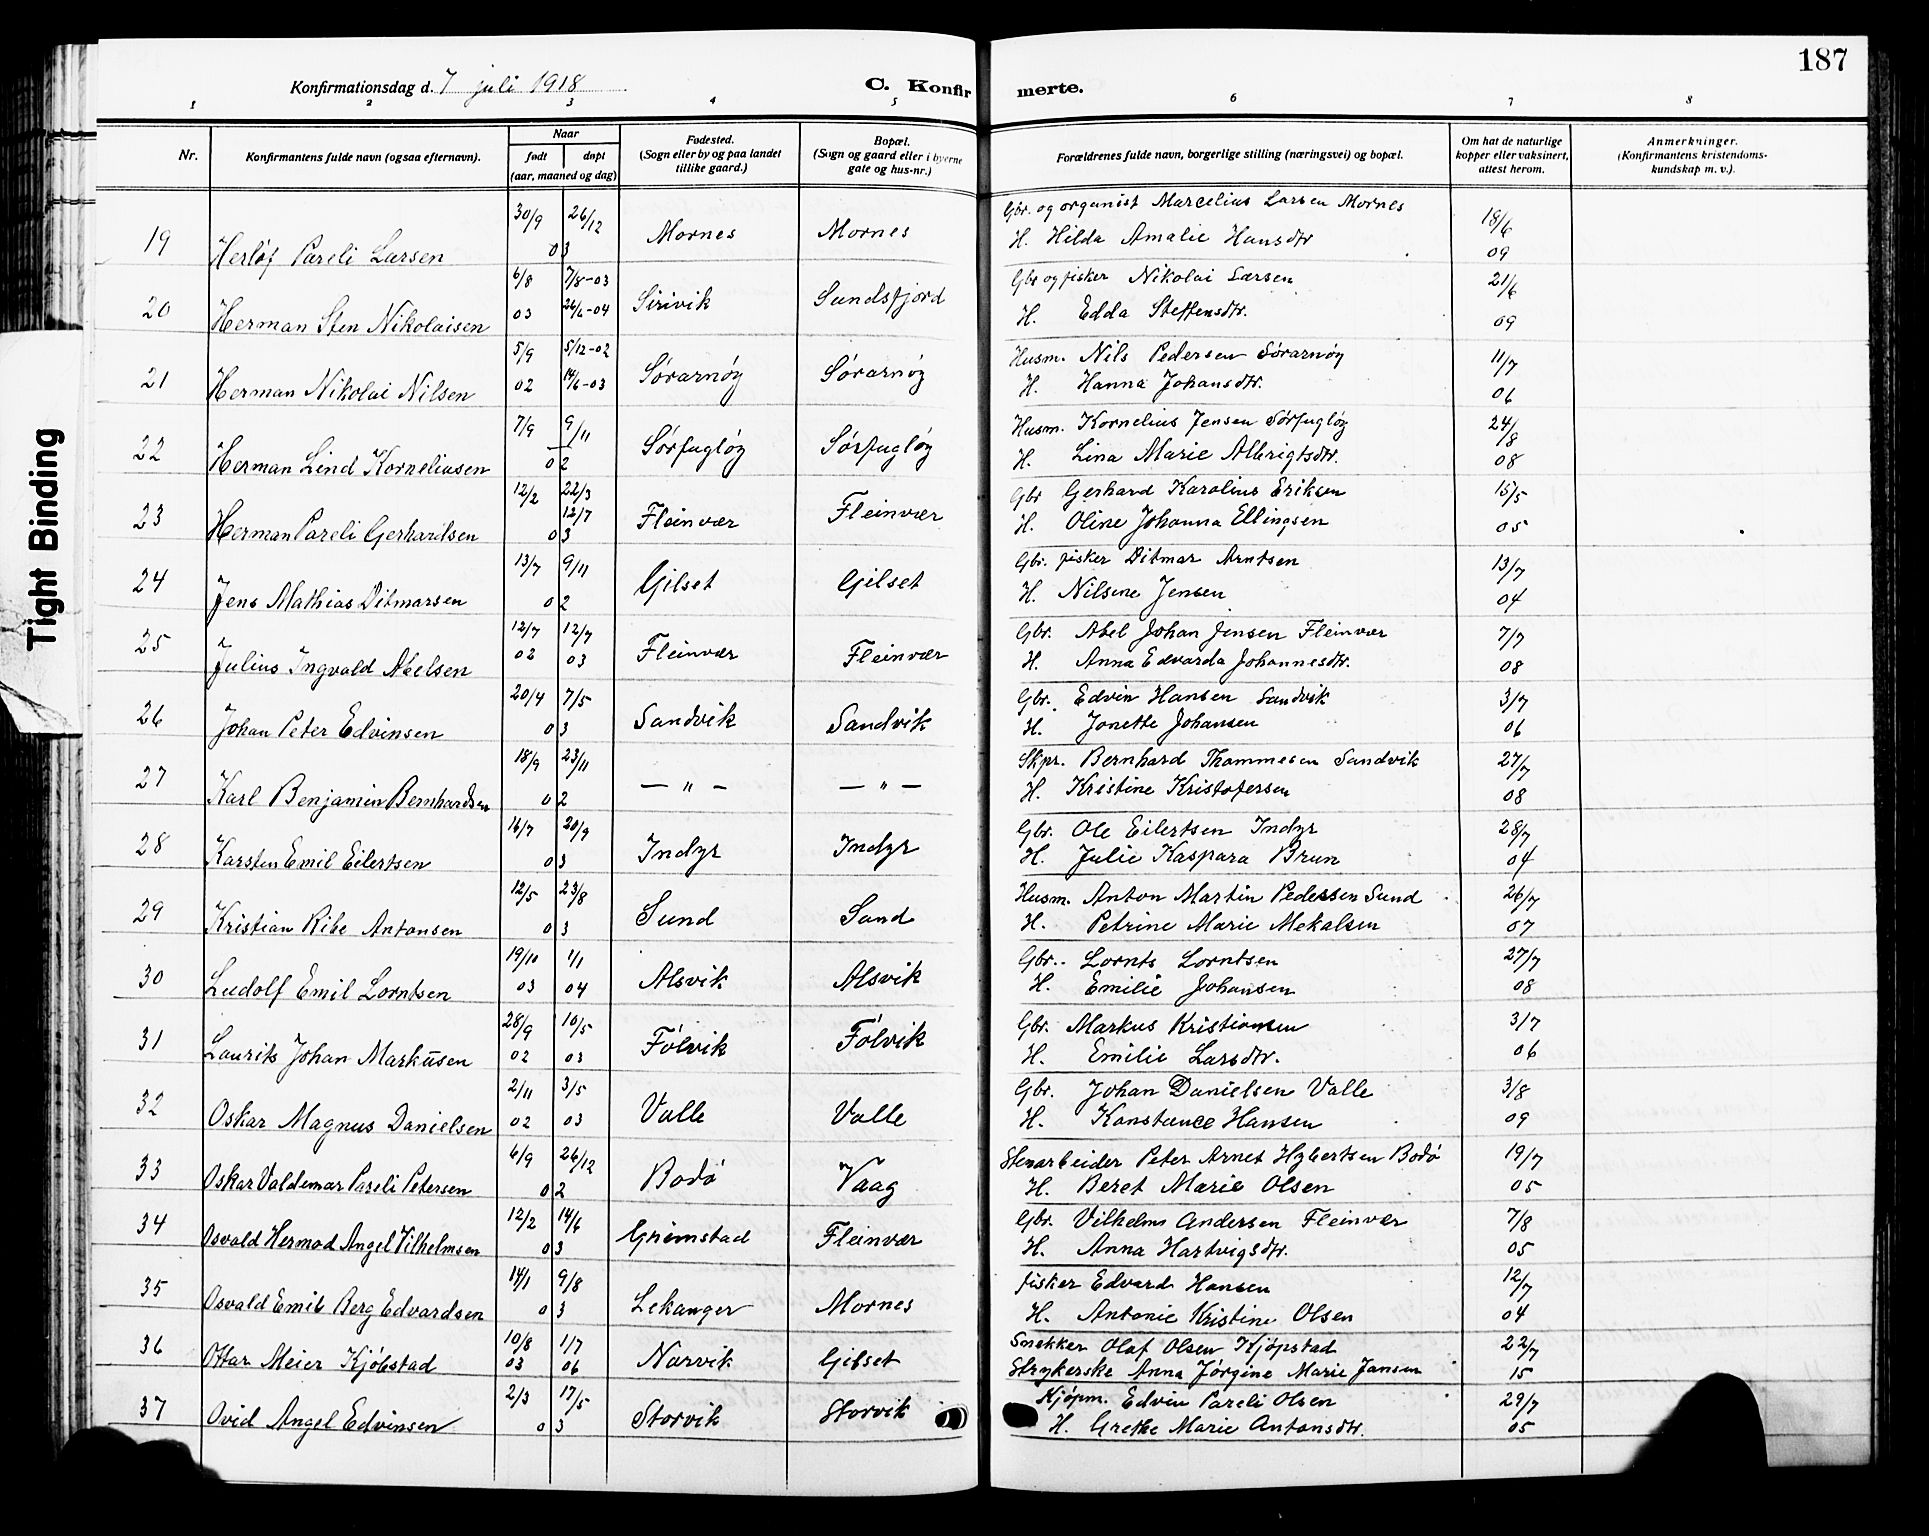 187
Konfirmationsdag d. 7 juli 1918
C. Konfirmerte.
1 2 3 4 5 6 7 8
Nr.
Konfirmantens fulde navn (ogsaa efternavn).
Naar
født døpt
(aar, maaned og dag)
Fødested.
(Sogn eller by og paa landet
tillike gaard.)
Bopæl.
(Sogn og gaard eller i byerne
gate og hus-nr.)
Forældrenes fulde navn, borgerlige stilling (næringsvei) og bopæl.
Om hat de naturlige
kopper eller vaksinert,
attest herom.
Anmerkninger.
(Konfirmantens kristendoms-
kundskap m. v.).
Tight Binding
19 Herløf Pareli Larsen 30/9 26/12 03 Mornes Mornes Gbr. og organist Marcelius Larsen Mornes 18/6
H. Hilda Amalie Hansdtr 09
20 Herman Sten Nikolaisen 6/8 03 7/8-03 26/6-04 Sirivik Sundsfjord Gbr og fisker Nikolai Larsen 21/6
H. Edda Steffensdtr. 09
21 Herman Nikolai Nilsen 5/9 02 5/12-02 14/6-03 Sørarnøy Sørarnøy Husm. Nils Pedersen Sørarnøy 11/7
H. Hanna Johansdtr. 06
22 Herman Lind Korneliusen 7/9 9/11 02 Sørfugløy Sørfugløy Husm. Kornelius Jensen Sørfugløy 24/8
H. Lina Marie Albrigtsdtr. 08
23 Herman Pareli Gerhardsen 12/2 22/3 12/7 03 Fleinvær Fleinvær Gbr Gerhard Karolius Eriksen 15/5
H. Oline Johanna Ellingsen 05
24 Jens Mathias Ditmarsen 13/7 9/11 02 Gilset Gilset Gbr. fisker Ditmar Arntsen 13/7
H. Nilsine Jensen 04
25 Julius Ingvald Abelsen 12/7 02 12/7 03 Fleinvær Fleinvær Gbr. Abel Johan Jensen Fleinvær 7/7
H. Anna Edvarda Johannesdtr. 08
26 Johan Peter Edvinsen 20/4 7/5 03 Sandvik Sandvik Gbr. Edvin Hansen Sandvik 3/7
H. Jonette Johansen 06
27 Karl Benjamin Bernhardsen 18/9 23/11 02 — " — — " — Skpr. Bernhard Thommesen Sandvik 27/7
H. Kristine Kristofersen 08
28 Karsten Emil Eilertsen 16/7 20/9 03 Indyr Indyr Gbr. Ole Eilertsen Indyr 28/7
H. Julie Kaspara Brun 04
29 Kristian Ribe Antonsen 12/5 23/8 03 Sund Sand Husm. Anton Martin Pedersen Sund 26/7
H. Petrine Marie Mekalsen 07
30 Ludolf Emil Lorntsen 19/10 03 1/1 04 Alsvik Alsvik Gbr. Lornts Lorntsen 27/7
H. Emilie Johansen 08
31 Laurits Johan Markusen 28/9 02 10/5 03 Følvik Følvik Gbr. Markus Kristiansen 3/7
H. Emilie Larsdtr. 06
32 Oskar Magnus Danielsen 2/11 02 3/5 03 Valle Valle Gbr. Johan Danielsen Valle 3/8
H. Konstance Hansen 09
33 Oskar Valdemar Pareli Petersen 6/9 26/12 02 Bodø Vaag Stenarbeider Peter Arnet Hybertsen Bodø 19/7
H. Beret Marie Olsen 05
34 Osvald Hermod Angel Vilhelmsen 12/2 14/6 03 Grimstad Fleinvær Gbr. Vilhelm Andersen Fleinvær 7/8
H. Anna Hartvigsdtr. 05
35 Osvald Emil Berg Edvardsen 14/1 9/8 03 Lekanger Mornes fisker Edvard Hansen 12/7
H. Antonie Kristine Olsen 04
36 Ottar Meier Kjøbstad 10/8 03 1/7 06 Narvik Gilset Snekker Olaf Olsen Kjøpstad 22/7
Strykerske Anna Jørgine Marie Jansen 15
37 Ovid Angel Edvinsen 2/3 17/5 03 Storvik Storvik Kjøpm. Edvin Pareli Olsen 29/7
H. Grethe Marie Antonsdtr. 05